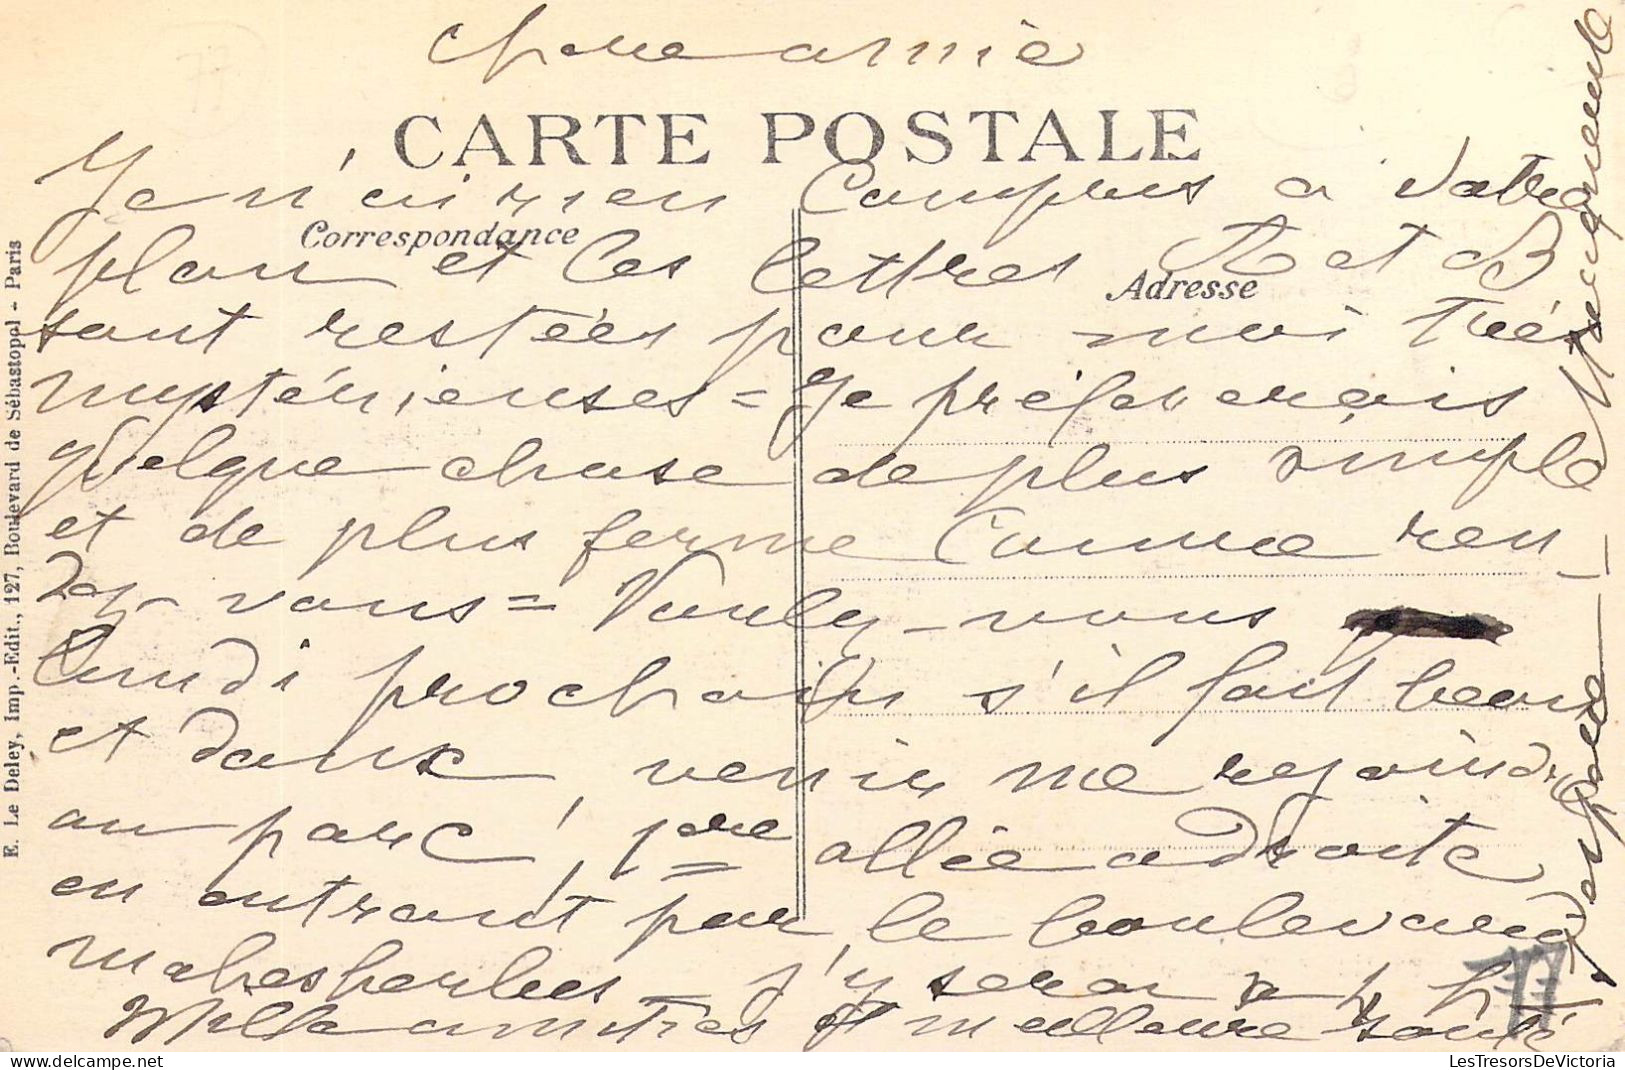 chère amie
CARTE POSTALE
Je n'ai rien Compris a votre
Correspondance
plan et les lettres A et B
Adresse
sont restées pour moi très
mystérieuses = Je préfererais
quelque chose de plus simple
et de plus ferme Comme ren
dez-vous = Voulez-vous
lundi prochain s'il fait beau
et doux, venir me rejoindre
au parc, 1ère allée a droite
en entrant par le boulevard
malesherbes _ j'y serai à 4 h
Mille amitiés et meilleure santé
réponse
E. Le Deley, Imp.-Edit., 127, Boulevard de Sébastopol - Paris
77
LesTresorsDeVictoria